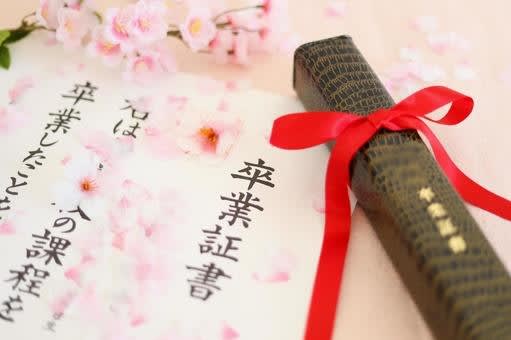 卒業証書
君は
の課程を
卒業したことを
卒業証書